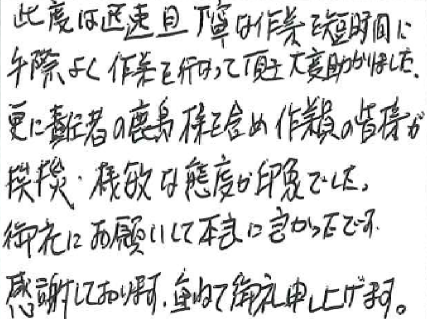 此度は迅速且丁寧な作業を短時間に
手際よく作業を行なって頂き大変助かりました。
更に責任者の鹿島様を含め作業員の皆様が
挨拶・機敏な態度が印象でした。
御社にお願いして本当に良かったです。
感謝しております。重ねて御礼申し上げます。